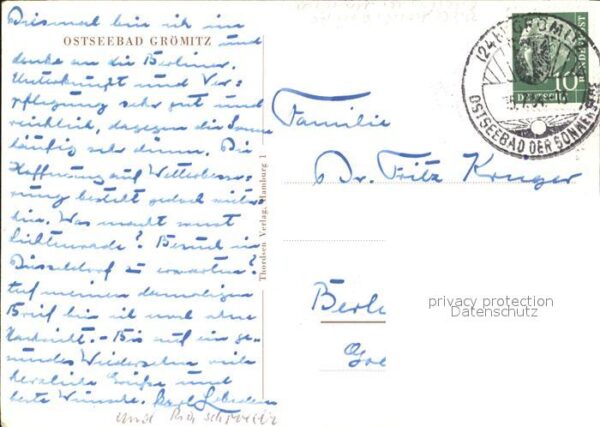 Diesmal bin ich im
OSTSEEBAD GRÖMITZ
und
denke an die Berliner.
Unterkunft und Ver-
pflegung sehr gut und
reichlich, dagegen die Sonne
häufig sehr dünn. Die
Hoffnung auf Wetterbesse-
rung besteht jedoch weiter-
hin. Was macht sonst
Lichtenrade? Besuch in
Düsseldorf zu erwarten?
Auf meinen damaligen
Brief bin ich noch ohne
Nachricht. - Bis auf ein ge-
sundes Wiedersehen viele
herzliche Grüße und
beste Wünsche.
und
Thordsen Verlag, Hamburg 1
GRÖMITZ
OSTSEEBAD DER SONNENSEITE
10
DEUTSCHE BUNDESPOST
Familie
Dr. Fritz Krüger
Berli
privacy protection
Datenschutz